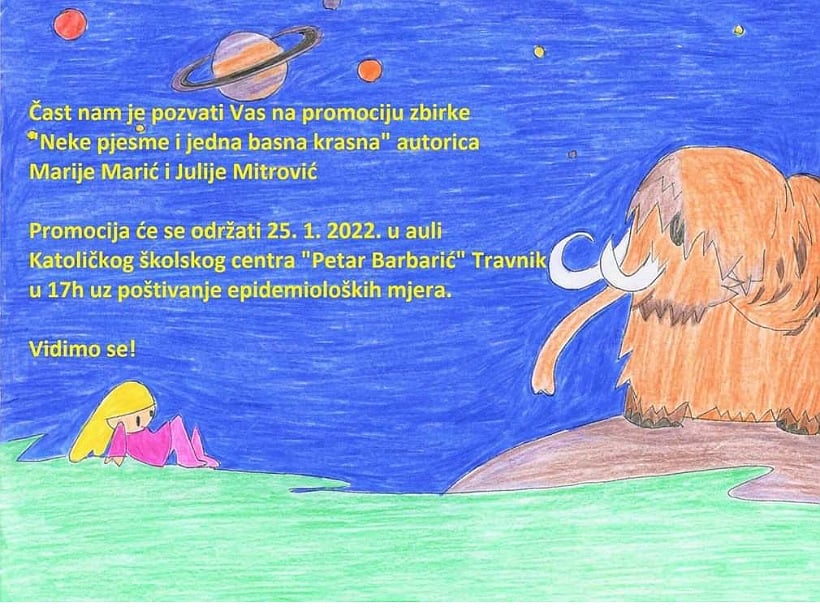 Čast nam je pozvati Vas na promociju zbirke
"Neke pjesme i jedna basna krasna" autorica
Marije Marić i Julije Mitrović
Promocija će se održati 25. 1. 2022. u auli
Katoličkog školskog centra "Petar Barbarić" Travnik
u 17h uz poštivanje epidemioloških mjera.
Vidimo se!